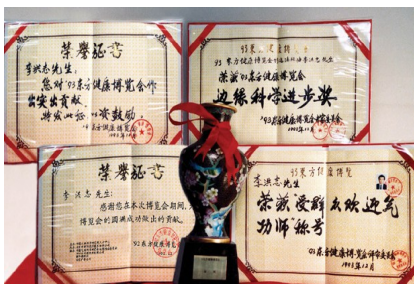 荣誉证书
李洪志先生:
您对'93东方健康博览会作
出突出贡献。
特发此证 以资鼓励
'93东方健康博览会
1993年12月
李洪志先生
荣获'93东方健康博览会
边缘科学进步奖
'93东方健康博览会
1993年12月
荣誉证书
李洪志先生:
感谢您在本次博览会期间,
博览会的圆满成功做出的贡献。
'92东方健康博览会
92.12
93东方健康博览
李洪志先生
荣获受群众欢迎气
功师称号
93东方健康博览会评审委员会
1993年12月